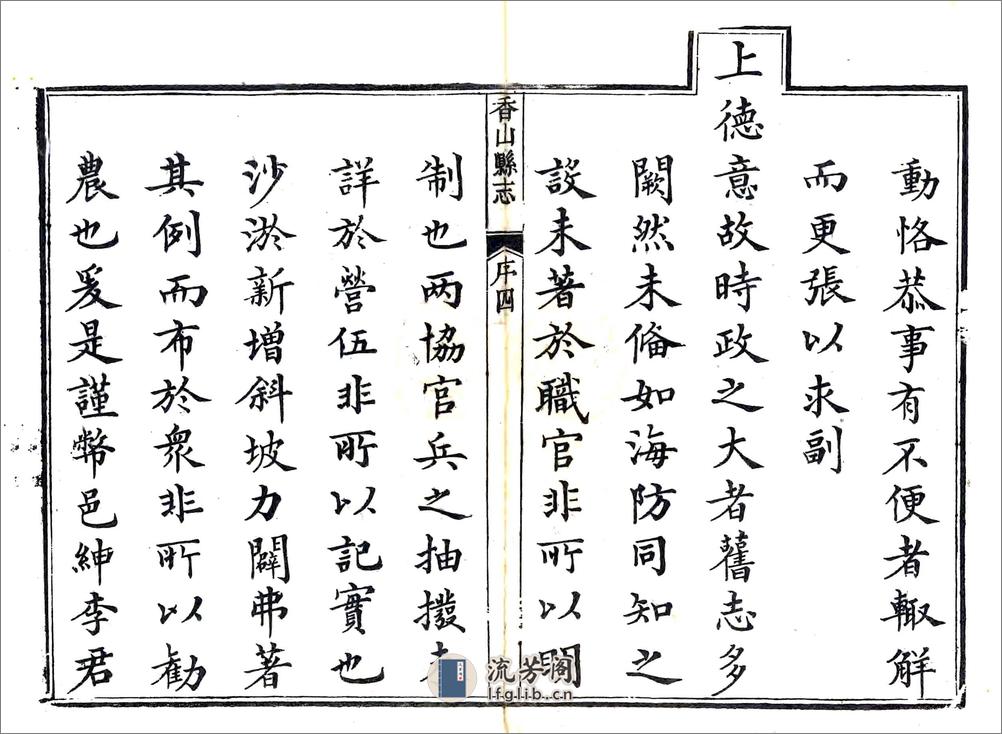 動恪恭事有不便者輙解
而更張以求副
上德意故時政之大者舊志多
闕然未僃如海防同知之
設未著於職官非所以
香山縣志 序四
制也两協官兵之抽撥
詳於營伍非所以記實也
沙淤新增斜坡力闢弗著
其例而布於衆非所以勸
農也爰是謹幣邑紳李君
流芳阁
lfglib.cn